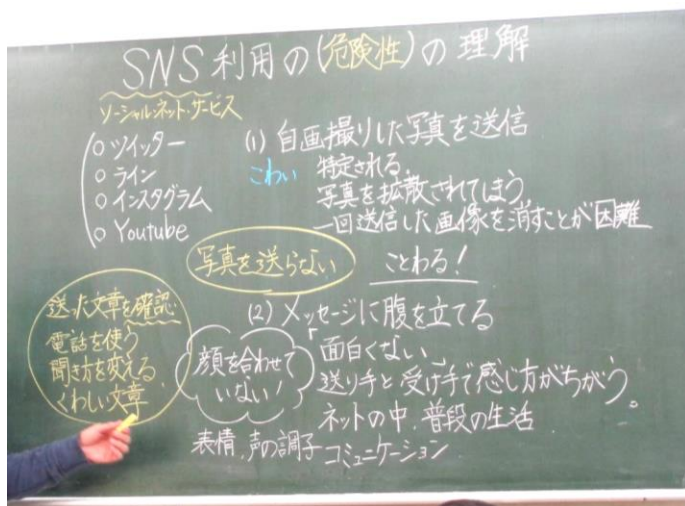 SNS利用の(危険性)の理解
ソーシャル・ネット・サービス
○ツイッター
○ライン
○インスタグラム
○Youtube
(1) 自画撮りした写真を送信
こわい
特定される。
写真を拡散されてしまう
一回送信した画像を消すことが困難
写真を送らない
ことわる!
(2) メッセージに腹を立てる
「面白くない」
送り手と受け手で感じ方がちがう。
ネットの中、普段の生活
コミュニケーション
顔を合わせて
いない!
表情、声の調子
送った文章を確認
電話を使う
聞き方を変える
くわしい文章